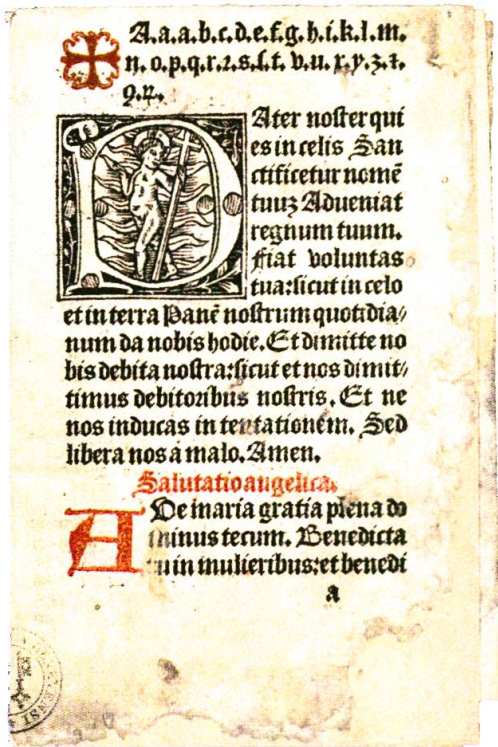 A.a.a.b.c.d.e.f.g.h.i.k.l.m.
n.o.p.q.r.ꝛ.s.ſ.t.v.u.x.y.z.⁊.
ꝯ.ꝝ.
PAter noſter qui
es in celis San
ctificetur nomē
tuuʒ Adueniat
regnum tuum.
fiat voluntas
tua:ſicut in celo
et in terra Panē noſtrum quotidia/
num da nobis hodie. Et dimitte no
bis debita noſtra:ſicut et nos dimit/
timus debitoꝛibus noſtris. Et ne
nos inducas in tentationem. Sed
libera nos a malo. Amen.
Salutatio angelica.
AUe maria gratia plena do
minus tecum. Benedicta
tu in mulieribus:et benedi
a